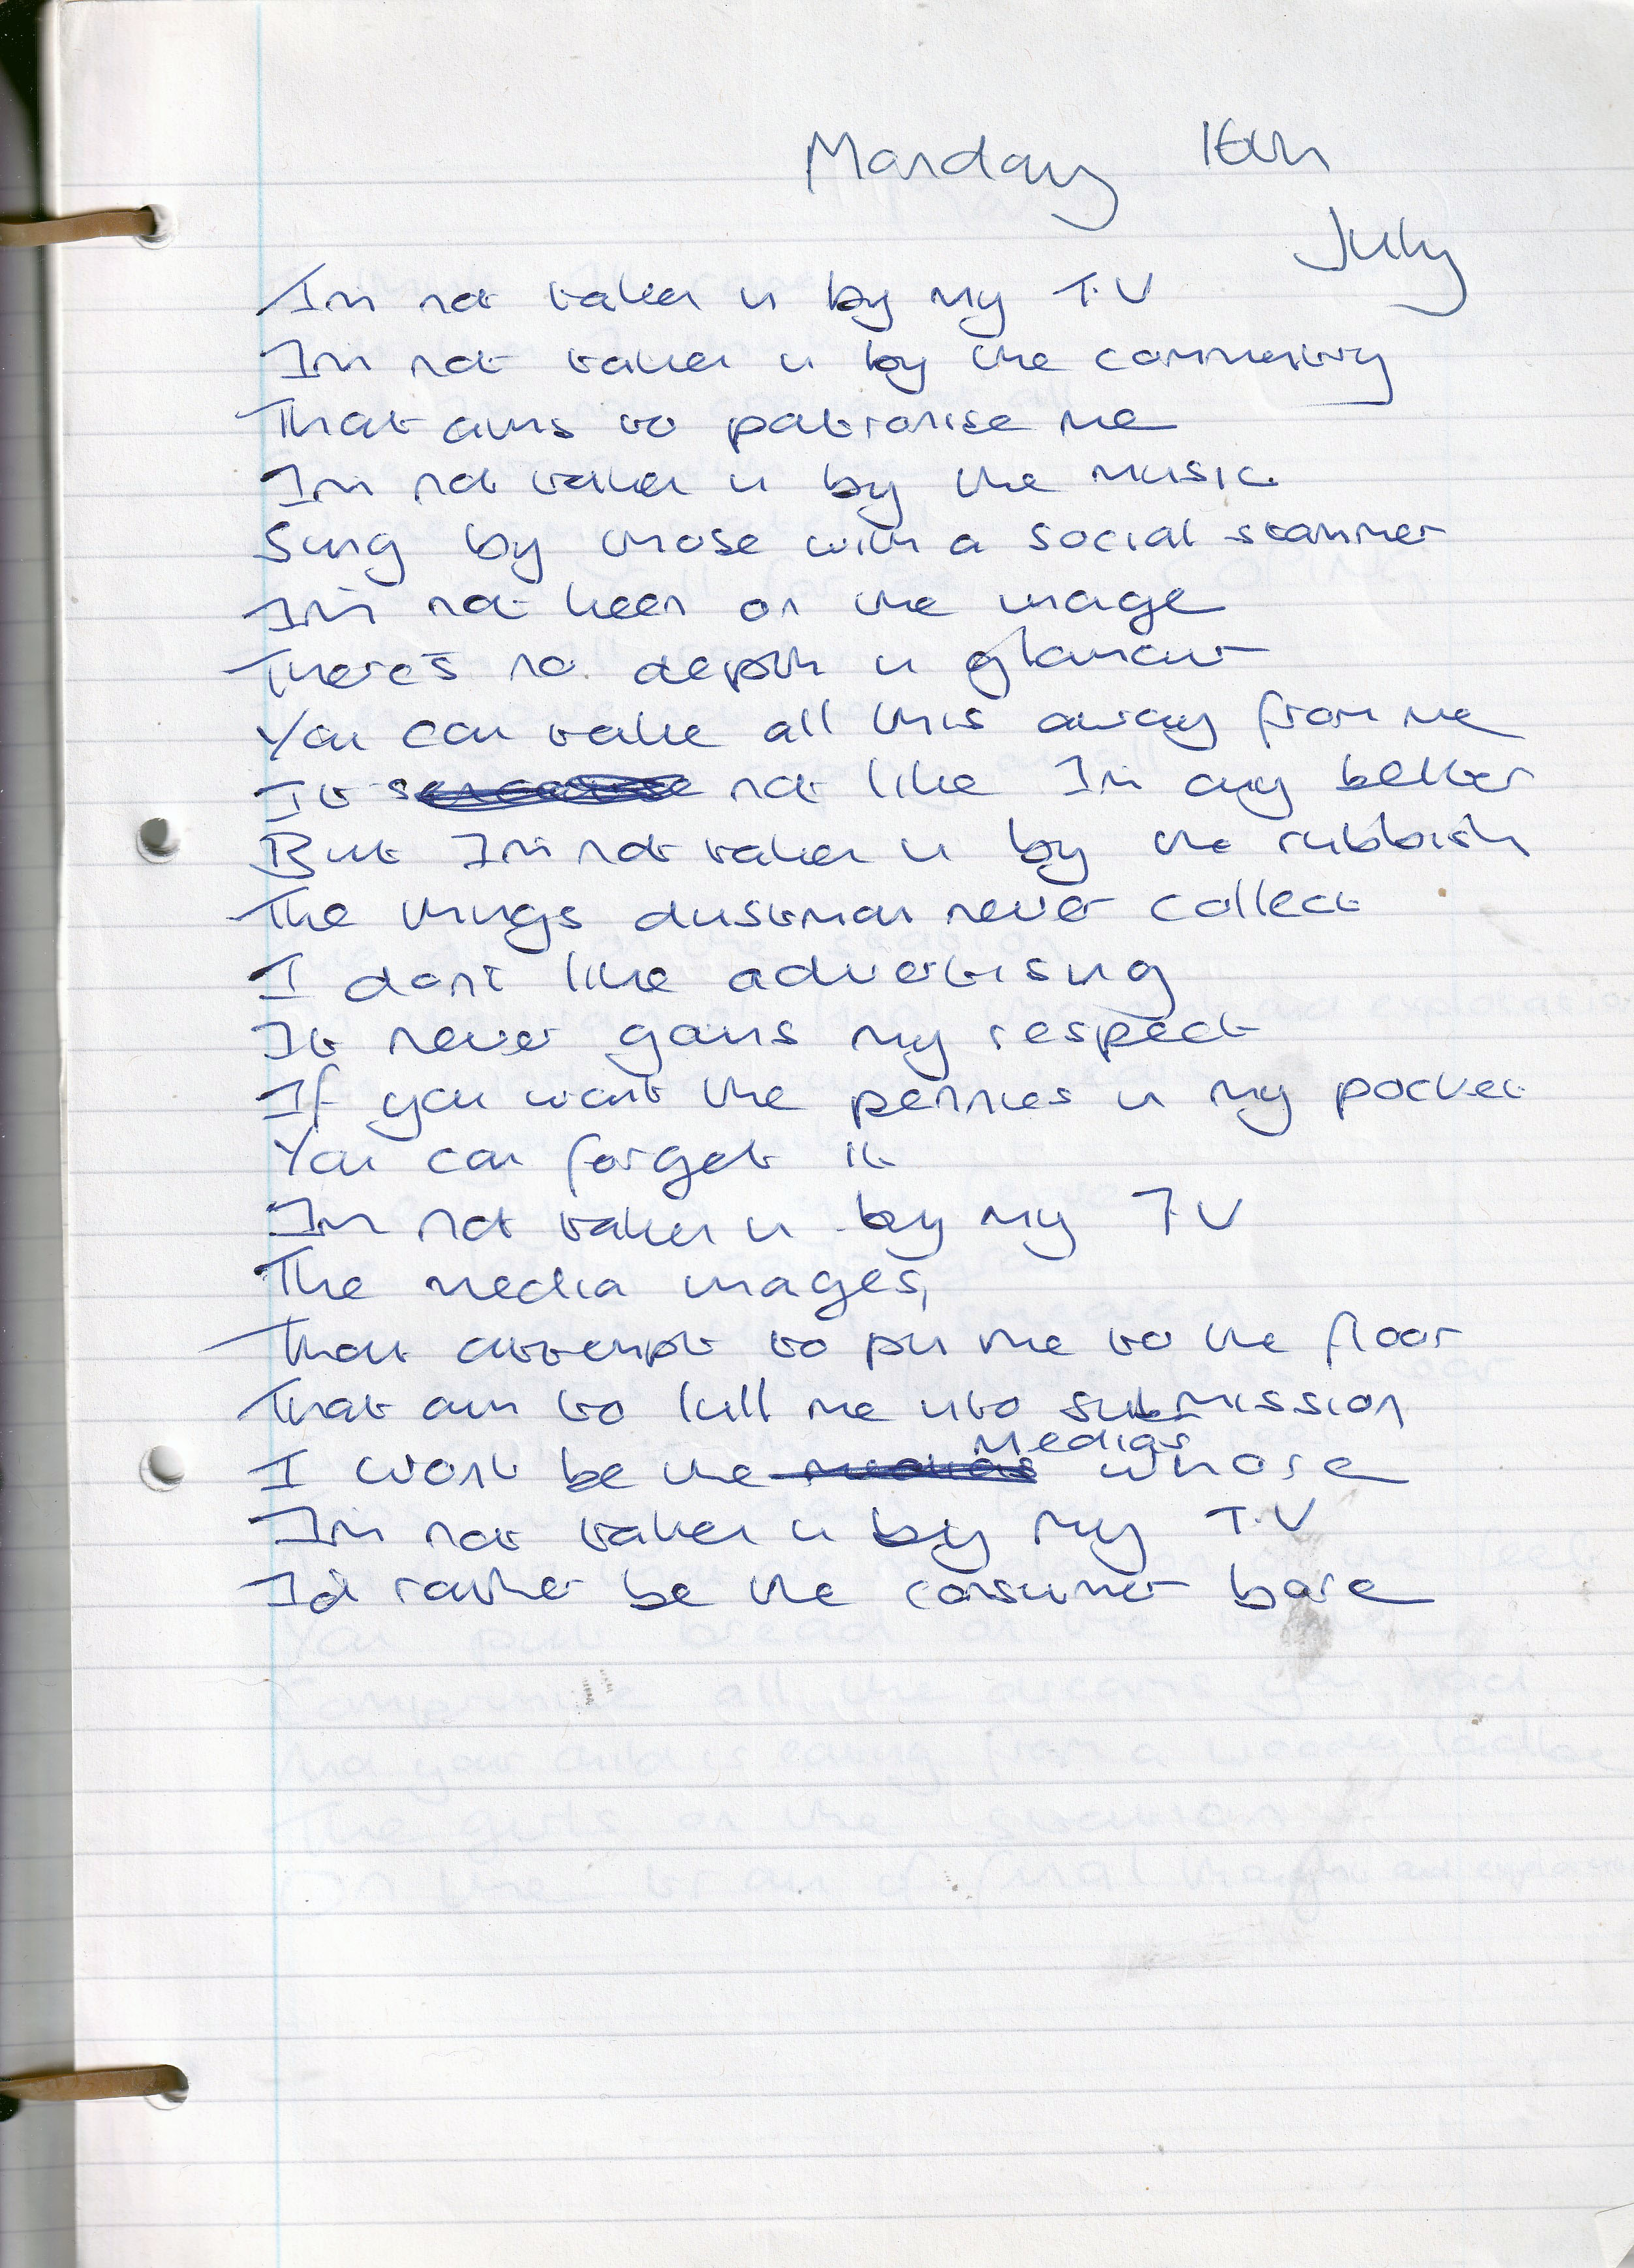 Monday 16th
July
I'm not taken in by my T.V
I'm not taken in by the commentry
That aims to patronise me
I'm not taken in by the music
Sung by those with a social stammer
I'm not keen on the image
There's no depth in glamour
You can take all this away from me
It s not like I'm any better
But I'm not taken in by the rubbish
The things dustman never collect
I don't like advertising
It never gains my respect
If you want the pennies in my pocket
You can forget it
I'm not taken in by my TV
The media images,
That attempt to pin me to the floor
That aim to lull me into submission
I wont be the medias whore
I'm not taken in by my T.V
I'd rather be the consumer bore